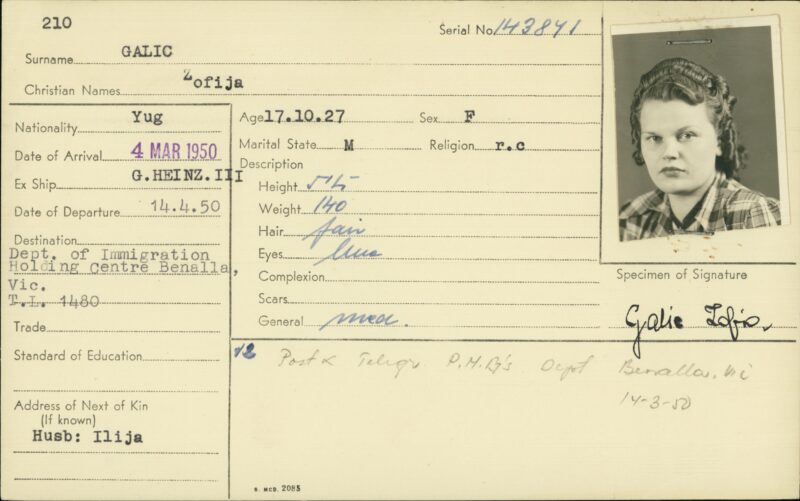 210
Serial No. 143841
Surname GALIC
Christian Names Zofija
Nationality Yug
Date of Arrival 4 MAR 1950
Ex Ship G.HEINZ.III
Date of Departure 14.4.50
Destination
Dept. of Immigration
Holding centre Benalla,
Vic.
T.L. 1480
Trade
Standard of Education
Address of Next of Kin
(If known)
Husb: Ilija
Age 17.10.27 Sex F
Marital State M Religion r.c
Description
Height
Weight 140
Hair fair
Eyes blue
Complexion
Scars
General med.
Specimen of Signature
Galic Zofia.
12 Post & Telegr. P.M.G's Dept Benalla. Vic
14-3-50
S. MCD. 2085